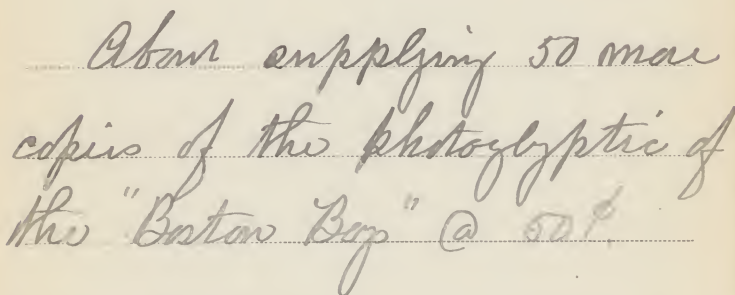 About supplying 50 more
copies of the photoglyptic of
the "Boston Boy" @ 50¢